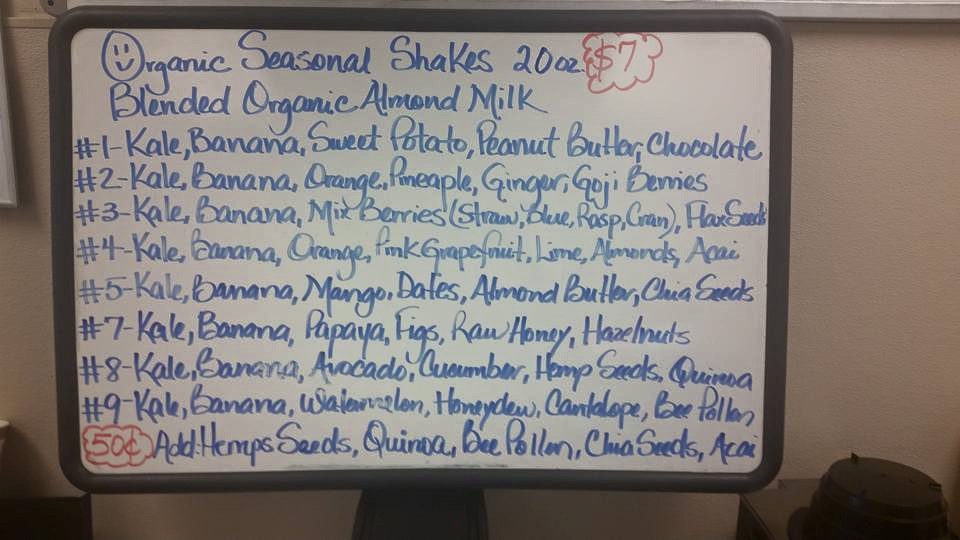 Organic Seasonal Shakes 20oz. $7
Blended Organic Almond Milk
#1-Kale, Banana, Sweet Potato, Peanut Butter, Chocolate
#2-Kale, Banana, Orange, Pineaple, Ginger, Goji Berries
#3-Kale, Banana, Mix Berries (Straw, Blue, Rasp, Cran), Flax Seeds
#4-Kale, Banana, Orange, Pink Grapefruit, Lime, Almonds, Acai
#5-Kale, Banana, Mango, Dates, Almond Butter, Chia Seeds
#7-Kale, Banana, Papaya, Figs, Raw Honey, Hazelnuts
#8-Kale, Banana, Avocado, Cucumber, Hemp Seeds, Quinoa
#9-Kale, Banana, Watermelon, Honeydew, Cantalope, Bee Pollen
50¢ Add: Hemps Seeds, Quinoa, Bee Pollen, Chia Seeds, Acai